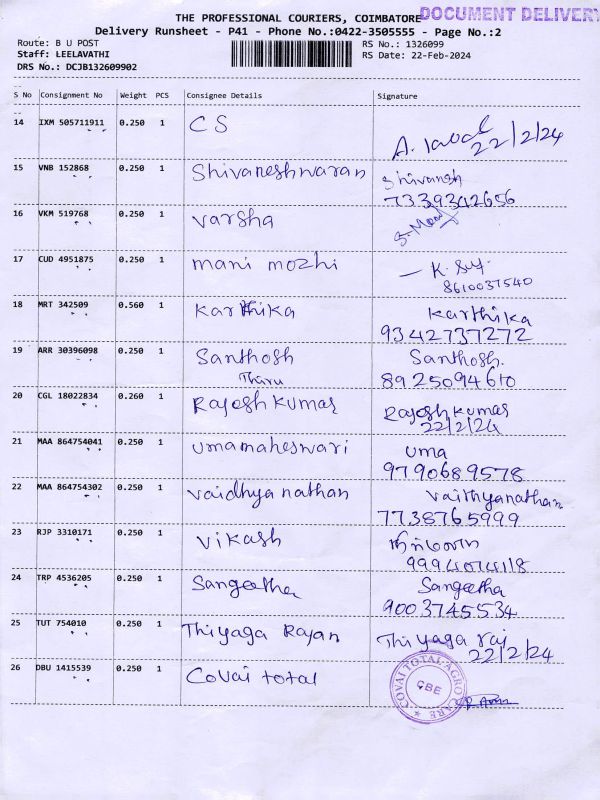 THE PROFESSIONAL COURIERS, COIMBATORE
DOCUMENT DELIVERY
Delivery Runsheet - P41 - Phone No.:0422-3505555 - Page No.:2
Route: B U POST
RS No.: 1326099
Staff: LEELAVATHI
RS Date: 22-Feb-2024
DRS No.: DCJB132609902
S No Consignment No Weight PCS Consignee Details Signature
14 IXM 505711911 0.250 1 CS
22/2/24
15 VNB 152868 0.250 1 Shivaneshwaran Shivanesh
7339342656
16 VKM 519768 0.250 1 Varsha
17 CUD 4951875 0.250 1 mani mozhi
8610037540
18 MRT 342509 0.560 1 Karthika Karthika
9342737272
19 ARR 30396098 0.250 1 Santhosh Santhosh.
Thiru 8925094610
20 CGL 18022834 0.260 1 Rajesh Kumar Rajesh Kumar
22/2/24
21 MAA 864754041 0.250 1 umamaheswari uma
9790689578
22 MAA 864754302 0.250 1 Vaidhya nathan Vaithyanathan
7738765999
23 RJP 3310171 0.250 1 Vikash
9994074118
24 TRP 4536205 0.250 1 Sangeetha Sangeetha
9003745534
25 TUT 754010 0.250 1 Thiyaga Rajan Thiyaga raj
22/2/24
26 DBU 1415539 0.250 1 Covai total
COVAI TOTAL AGRO CARE
CBE